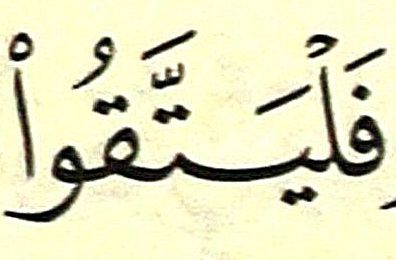 فَلْيَتَّقُوا۟